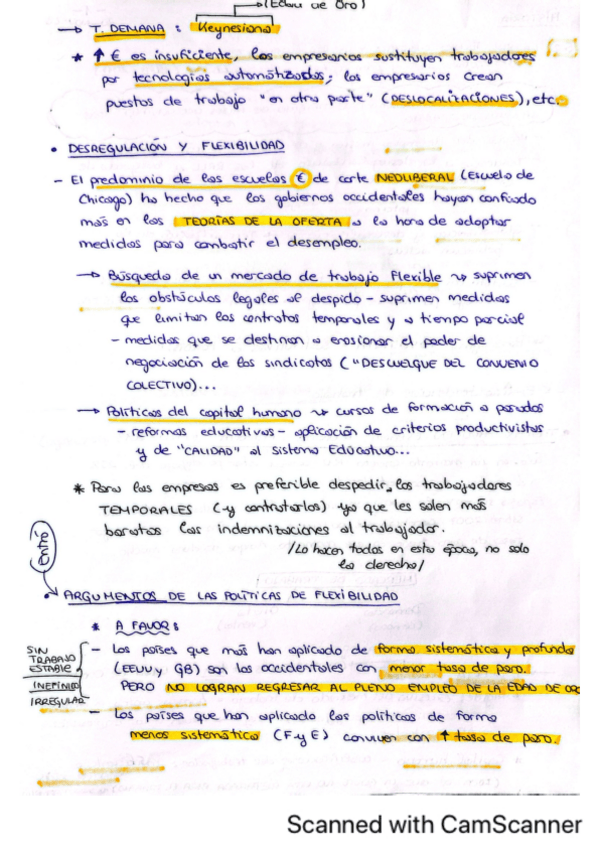 (Edad de Oro)
→ T. DEMANA : Keynesiana
* ↑ € es insuficiente, los empresarios sustituyen trabajadores
por tecnologías automatizadas; los empresarios crean
puestos de trabajo "en otra parte" (DESLOCALIZACIONES), etc.
• DESREGULACIÓN Y FLEXIBILIDAD
- El predominio de las escuelas € de corte NEOLIBERAL (Escuela de
Chicago) ha hecho que los gobiernos occidentales hayan confiado
más en las TEORÍAS DE LA OFERTA a la hora de adoptar
medidas para combatir el desempleo.
→ Búsqueda de un mercado de trabajo flexible ↝ suprimen
los obstáculos legales al despido - suprimen medidas
que limitan los contratos temporales y a tiempo parcial
- medidas que se destinan a erosionar el poder de
negociación de los sindicatos ("DESCUELGUE DEL CONVENIO
COLECTIVO)...
→ Políticas del capital humano ↝ cursos de formación a parados
- reformas educativas - aplicación de criterios productivistas
y de "CALIDAD" al Sistema Educativo...
* Para las empresas es preferible despedir los trabajadores
TEMPORALES (-y contratarlos) ya que les salen más
baratas las indemnizaciones al trabajador.
/Lo hacen todos en esta época, no solo
la derecha/
(entró)
ARGUMENTOS DE LAS POLÍTICAS DE FLEXIBILIDAD
* A FAVOR:
- Los países que más han aplicado de forma sistemática y profunda
(EEUU y GB) son los occidentales con menor tasa de paro.
PERO NO LOGRAN REGRESAR AL PLENO EMPLEO DE LA EDAD DE ORO
SIN
TRABAJO
ESTABLE
INEFINIDO
IRREGULAR
- Los países que han aplicado las políticas de forma
menos sistemática (F y E) conviven con ↑ tasa de paro.
Scanned with CamScanner